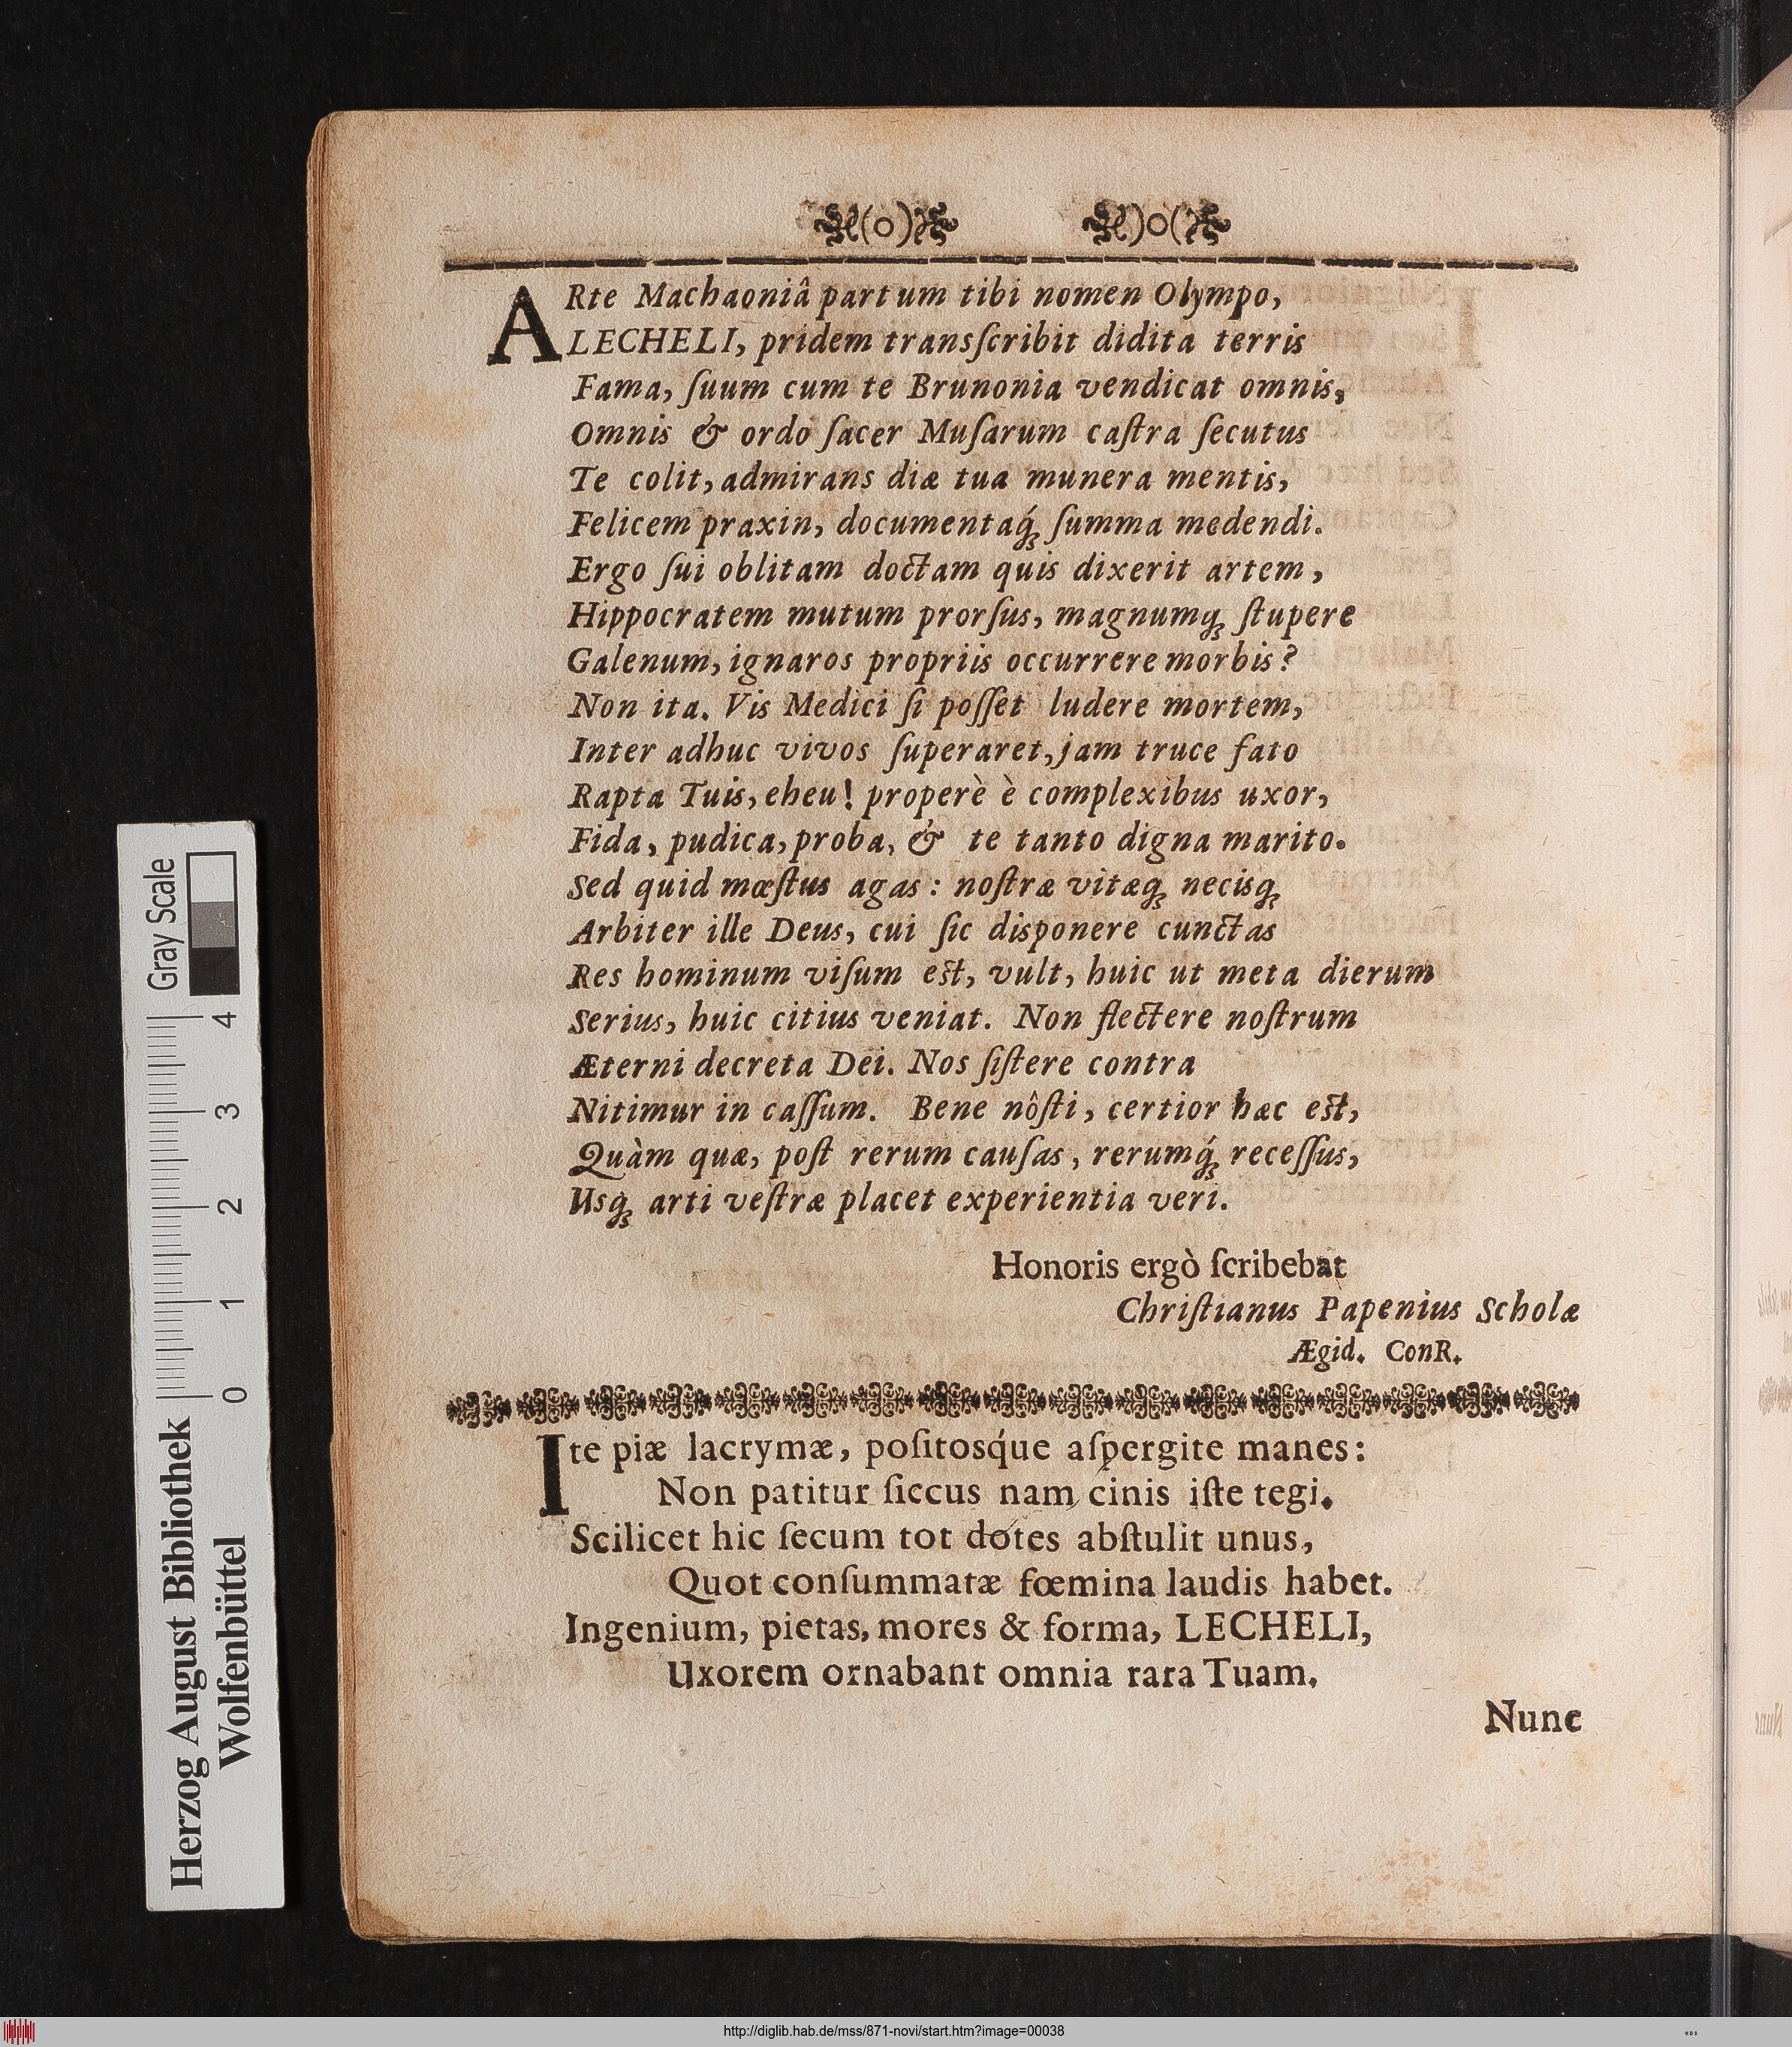 (o) )o(
ARte Machaoniâ partum tibi nomen Olympo,
LECHELI, pridem transſcribit didita terris
Fama, ſuum cum te Brunonia vendicat omnis,
Omnis & ordo ſacer Muſarum caſtra ſecutus
Te colit, admirans diæ tua munera mentis,
Felicem praxin, documentaq́; ſumma medendi.
Ergo ſui oblitam doctam quis dixerit artem,
Hippocratem mutum prorſus, magnumq; ſtupere
Galenum, ignaros propriis occurrere morbis?
Non ita. Vis Medici ſi poſſet ludere mortem,
Inter adhuc vivos ſuperaret, jam truce fato
Rapta Tuis, eheu! properè è complexibus uxor,
Fida, pudica, proba, & te tanto digna marito.
Sed quid mœſtus agas: noſtræ vitæq; necisq;
Arbiter ille Deus, cui ſic disponere cunctas
Res hominum viſum est, vult, huic ut meta dierum
Serius, huic citius veniat. Non flectere noſtrum
Æterni decreta Dei. Nos ſiſtere contra
Nitimur in caſſum. Bene nôſti, certior hæc est,
Quàm quæ, poſt rerum cauſas, rerumq́; receſſus,
Usq; arti veſtræ placet experientia veri.
Honoris ergò ſcribebat
Chriſtianus Papenius Scholæ
Ægid. ConR.
Ite piæ lacrymæ, poſitosq́ue aſpergite manes:
Non patitur ſiccus nam cinis iſte tegi.
Scilicet hic ſecum tot dotes abſtulit unus,
Quot conſummatæ fœmina laudis habet.
Ingenium, pietas, mores & forma, LECHELI,
Uxorem ornabant omnia rara Tuam.
Nunc
Gray Scale
0 1 2 3 4
Herzog August Bibliothek
Wolfenbüttel
http://diglib.hab.de/mss/871-novi/start.htm?image=00038